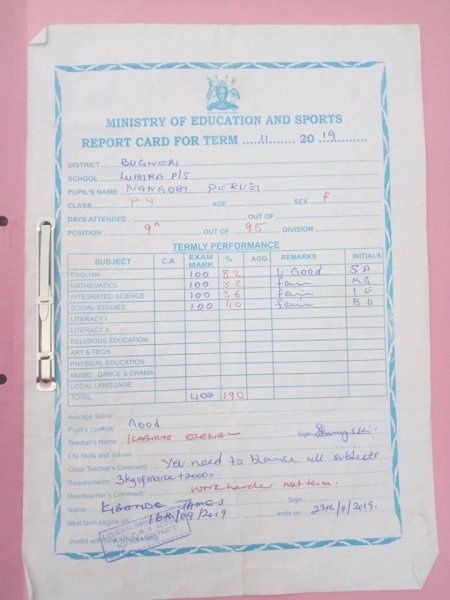 MINISTRY OF EDUCATION AND SPORTS
REPORT CARD FOR TERM 11 20 19
DISTRICT BUGWERI
SCHOOL LUBIRA P/S
PUPIL'S NAME NANGOBI PERUSI
CLASS P4 AGE SEX F
DAYS ATTENDED OUT OF
POSITION 9th OUT OF 95 DIVISION
TERMLY PERFORMANCE
SUBJECT C.A EXAM MARK % AGG REMARKS INITIALS
ENGLISH 100 82 V Good S A
MATHEMATICS 100 32 fair K B
INTEGRATED SCIENCE 100 36 fair I E
SOCIAL STUDIES 100 40 fair B D
LITERACY I
LITERACY II
RELIGIOUS EDUCATION
ART & TECH
PHYSICAL EDUCATION
MUSIC, DANCE & DRAMA
LOCAL LANGUAGE
TOTAL 400 190
Average Score:
Pupil's conduct: Good
Teacher's Name: ISABIRYE EZEKIEL Sign
Life Skills and Values:
Class Teacher's Comment: You need to blance all subjects
Requirements: 3kgofmaize+2000=
Headteacher's Comment: Work harder next term.
Name: KIBONDE JAMES Sign
Next term begins on: 16th/09/2019 ends on 29th/11/2019.
Invalid without